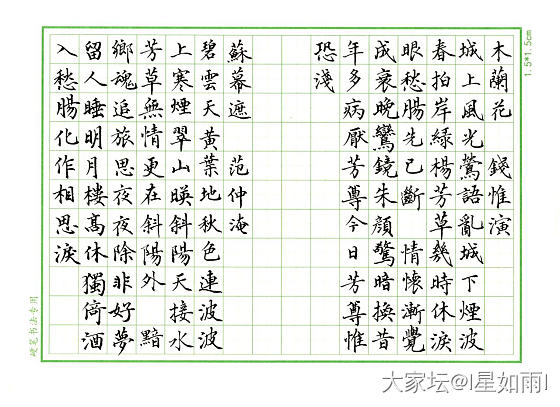 木蘭花 錢惟演
城上風光鶯語亂城下煙波
春拍岸綠楊芳草幾時休淚
眼愁腸先已斷 情懷漸覺
成衰晚鸞鏡朱顏驚暗換昔
年多病厭芳尊今日芳尊惟
恐淺
蘇幕遮 范仲淹
碧雲天黃葉地秋色連波波
上寒煙翠山暎斜陽天接水
芳草無情更在斜陽外 黯
鄉魂追旅思夜夜除非好夢
留人睡明月樓高休獨倚酒
入愁腸化作相思淚
1.5*1.5cm
硬笔书法专用
大家坛@I星如雨I